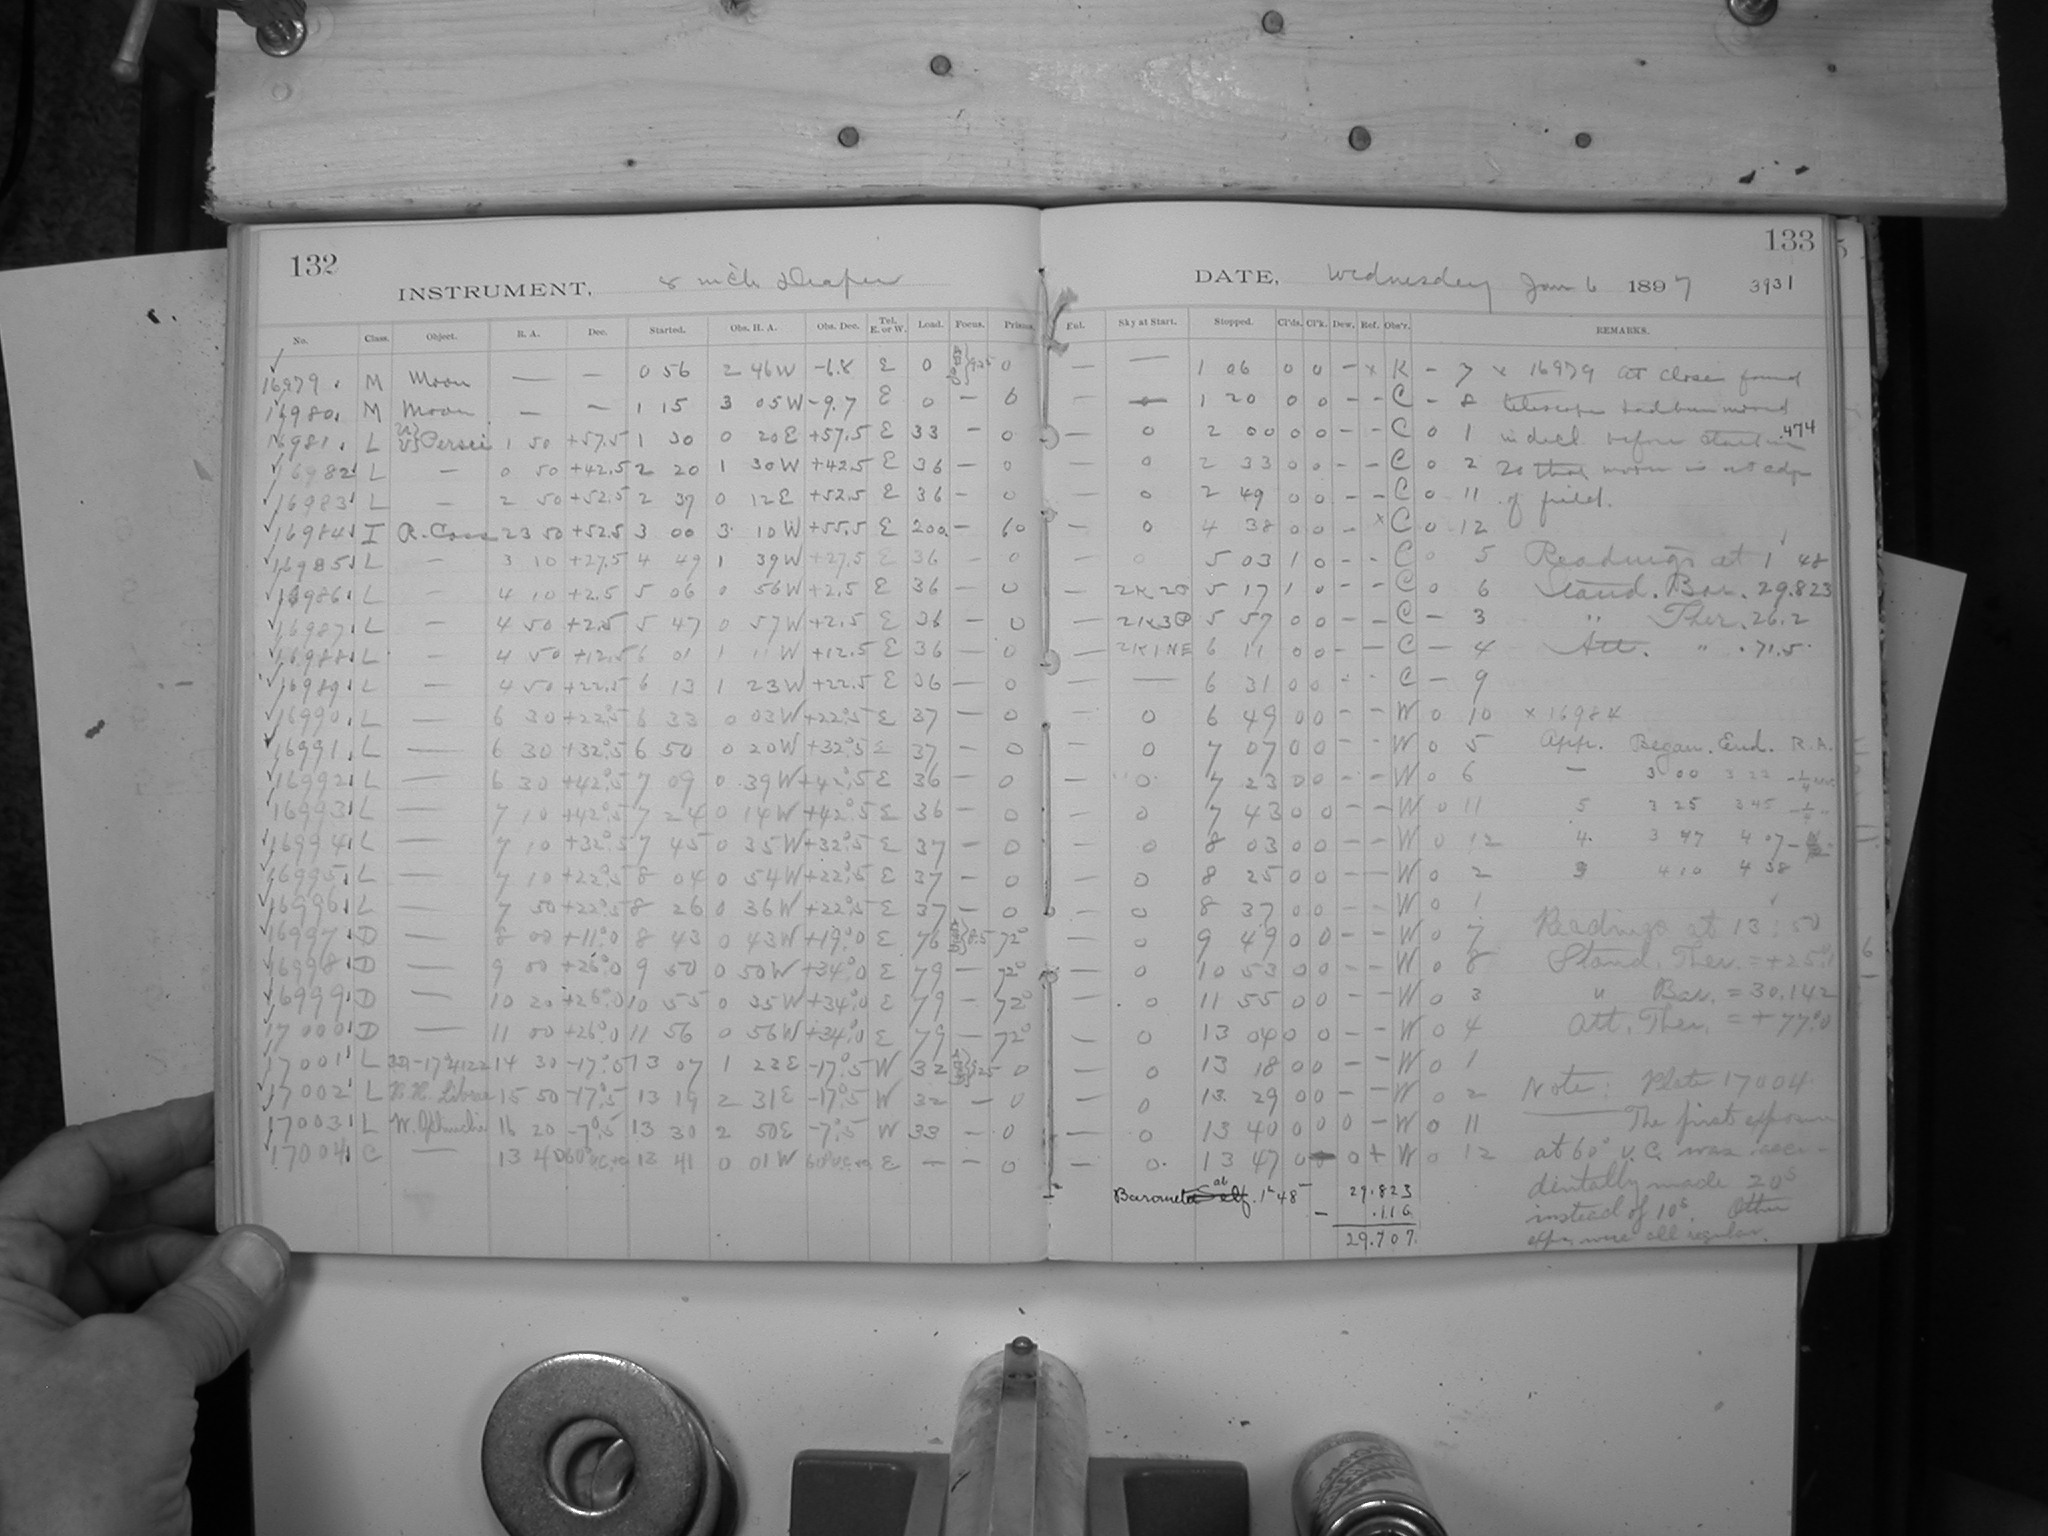 132
INSTRUMENT, 8 inch Draper
No. Class. Object. R. A. Dec. Started. Obs. H. A. Obs. Dec. Tel. E. or W. Load. Focus. Prism.
16979. M Moon — — 0 56 2 46W -6.8 E 0 0
16980. M Moon — — 1 15 3 05W -9.7 E 0 — 0
16981. L Persei 1 50 +57.5 1 30 0 20E +57.5 E 33 — 0
16982. L — 0 50 +42.5 2 20 1 30W +42.5 E 36 — 0
16983. L — 2 50 +52.5 2 37 0 12E +52.5 E 36 — 0
16984. I R. Cass 23 50 +52.5 3 00 3 10W +55.5 E 200 — 60
16985. L — 3 10 +27.5 4 49 1 39W +27.5 E 36 — 0
16986. L — 4 10 +2.5 5 06 0 56W +2.5 E 36 — 0
16987. L — 4 50 +2.5 5 47 0 57W +2.5 E 36 — 0
16988. L — 4 50 +12.5 6 01 1 11W +12.5 E 36 — 0
16989. L — 4 50 +22.5 6 13 1 23W +22.5 E 36 — 0
16990. L — 6 30 +22°.5 6 33 0 03W +22°.5 E 37 — 0
16991. L — 6 30 +32°.5 6 50 0 20W +32°.5 E 37 — 0
16992. L — 6 30 +42°.5 7 09 0 39W +42°.5 E 36 — 0
16993. L — 7 10 +42°.5 7 24 0 14W +42°.5 E 36 — 0
16994. L — 7 10 +32°.5 7 45 0 35W +32°.5 E 37 — 0
16995. L — 7 10 +22°.5 8 04 0 54W +22°.5 E 37 — 0
16996. L — 7 50 +22°.5 8 26 0 36W +22°.5 E 37 — 0
16997. D — 8 00 +11°.0 8 43 0 43W +19°.0 E 76 8.5 72°
16998. D — 9 00 +26°.0 9 50 0 50W +34°.0 E 79 — 72°
16999. D — 10 20 +26°.0 10 55 0 35W +34°.0 E 79 — 72°
17000. D — 11 00 +26°.0 11 56 0 56W +34°.0 E 79 — 72°
17001. L -17°4122 14 30 -17°.5 13 07 1 22E -17°.5 W 32 0
17002. L Librae 15 50 -17°.5 13 19 2 31E -17°.5 W 32 — 0
17003. L 16 20 -7°.5 13 30 2 50E -7°.5 W 33 — 0
17004. C — 13 40 13 41 0 01W E — — 0
133
DATE, Wednesday Jan 6 1897 3931
Ful. Sky at Start. Stopped. Cl'ds. Cl'k. Dew. Ref. Obs'r. REMARKS.
— — 1 06 0 0 — x K — 7 x 16979 At close found
— — 1 20 0 0 — — C — 8 telescope had been moved
— 0 2 00 0 0 — — C 0 1 in decl. before starting .474
— 0 2 33 0 0 — — C 0 2 so that moon is at edge
— 0 2 49 0 0 — — C 0 11 of field.
— 0 4 38 0 0 — x C 0 12
— 0 5 03 1 0 — — C 0 5 Readings at 1 48
— 5 17 1 0 — — C 0 6 Stand. Bar. 29.823
— 5 57 0 0 — — C — 3 " Ther. 26.2
— 2K1NE 6 11 0 0 — — C — 4 Att. " . 71.5
— — 6 31 0 0 — — C — 9
— 0 6 49 0 0 — — W 0 10 x 16984
— 0 7 07 0 0 — — W 0 5 App. Began. End. R.A.
— 0 7 23 0 0 — — W 0 6 — 3 00 3 22
— 0 7 43 0 0 — — W 0 11 5 3 25 3 45
— 0 8 03 0 0 — — W 0 12 4 3 47 4 07
— 0 8 25 0 0 — — W 0 2 3 4 10 4 38
— 0 8 37 0 0 — — W 0 1
— 0 9 49 0 0 — — W 0 7 Readings at 13:50
— 0 10 53 0 0 — — W 0 8 Stand. Ther. = +25°.1
— 0 11 55 0 0 — — W 0 3 " Bar. = 30.142
— 0 13 04 0 0 — — W 0 4 Att. Ther. = +77°.0
— 0 13 18 0 0 — — W 0 1
— 0 13 29 0 0 — — W 0 2 Note: Plate 17004.
— 0 13 40 0 0 0 — W 0 11 The first exposure
— 0 13 47 0 0 + W 0 12 at 60° U.C. was acci-
dentally made 20s
instead of 10s. Other
exp. were all regular.
Barometer at 1h 48 29.823
— .116
29.707